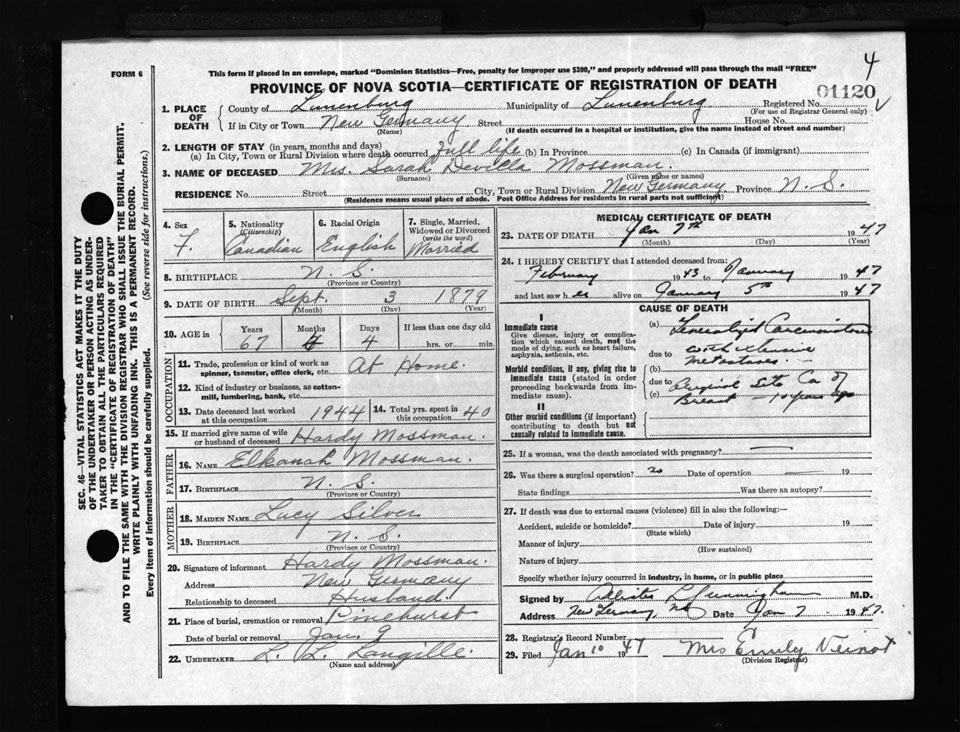 4
FORM 6
This form if placed in an envelope, marked "Dominion Statistics—Free, penalty for improper use $300," and properly addressed will pass through the mail "FREE"
PROVINCE OF NOVA SCOTIA—CERTIFICATE OF REGISTRATION OF DEATH
01120
1. PLACE OF DEATH County of Lunenburg Municipality of Lunenburg Registered No.
(For use of Registrar General only)
If in City or Town New Germany Street House No.
(Name) (If death occurred in a hospital or institution, give the name instead of street and number)
2. LENGTH OF STAY (in years, months and days)
(a) In City, Town or Rural Division where death occurred Full life (b) In Province (c) In Canada (if immigrant)
3. NAME OF DECEASED Mrs. Sarah Davilla Mossman.
(Surname) (Given name or names)
RESIDENCE No. Street City, Town or Rural Division New Germany Province N. S.
(Residence means usual place of abode. Post Office Address for residents in rural parts not sufficient)
4. Sex F.
5. Nationality (Citizenship) Canadian
6. Racial Origin English
7. Single, Married, Widowed or Divorced (write the word) Married
8. BIRTHPLACE N. S.
(Province or Country)
9. DATE OF BIRTH Sept. 3 1879
(Month) (Day) (Year)
10. AGE in Years Months Days If less than one day old
67 4 hrs. or min.
OCCUPATION
11. Trade, profession or kind of work as spinner, teamster, office clerk, etc. At Home.
12. Kind of industry or business, as cotton-mill, lumbering, bank, etc.
13. Date deceased last worked at this occupation 1944 14. Total yrs. spent in this occupation 40
15. If married give name of wife or husband of deceased Hardy Mossman.
FATHER
16. NAME Elkanah Mossman.
17. BIRTHPLACE N. S.
(Province or Country)
MOTHER
18. MAIDEN NAME Lucy Silver
19. BIRTHPLACE N. S.
(Province or Country)
20. Signature of informant Hardy Mossman.
Address New Germany
Relationship to deceased Husband.
21. Place of burial, cremation or removal Pinehurst
Date of burial or removal Jan. 9
22. UNDERTAKER L. L. Langille.
(Name and address)
MEDICAL CERTIFICATE OF DEATH
23. DATE OF DEATH Jan 7th 1947
(Month) (Day) (Year)
24. I HEREBY CERTIFY that I attended deceased from:
February 1943 to January 1947
and last saw h er alive on January 5th 1947
CAUSE OF DEATH
I
Immediate cause
Give disease, injury or complication which caused death, not the mode of dying, such as heart failure, asphyxia, asthenia, etc.
Morbid conditions, if any, giving rise to immediate cause (stated in order proceeding backwards from immediate cause).
II
Other morbid conditions (if important) contributing to death but not causally related to immediate cause.
(a) Generalized Carcinomatosis
due to with extensive
(b) metastases
due to Original Site Ca of
(c) Breast - 10 years ago
25. If a woman, was the death associated with pregnancy?
26. Was there a surgical operation? no Date of operation 19
State findings Was there an autopsy?
27. If death was due to external causes (violence) fill in also the following:—
Accident, suicide or homicide? Date of injury 19
(State which)
Manner of injury
(How sustained)
Nature of injury
Specify whether injury occurred in industry, in home, or in public place
Signed by Cunningham M.D.
Address New Germany, NS Date Jan 7 1947.
28. Registrar's Record Number
29. Filed Jan 10 1947 Mrs Emily Veinot
(Division Registrar)
SEC. 46—VITAL STATISTICS ACT MAKES IT THE DUTY
OF THE UNDERTAKER OR PERSON ACTING AS UNDER-
TAKER TO OBTAIN ALL THE PARTICULARS REQUIRED
IN THE "CERTIFICATE OF REGISTRATION OF DEATH"
AND TO FILE THE SAME WITH THE DIVISION REGISTRAR WHO SHALL ISSUE THE BURIAL PERMIT.
WRITE PLAINLY WITH UNFADING INK. THIS IS A PERMANENT RECORD.
Every item of information should be carefully supplied. (See reverse side for instructions.)